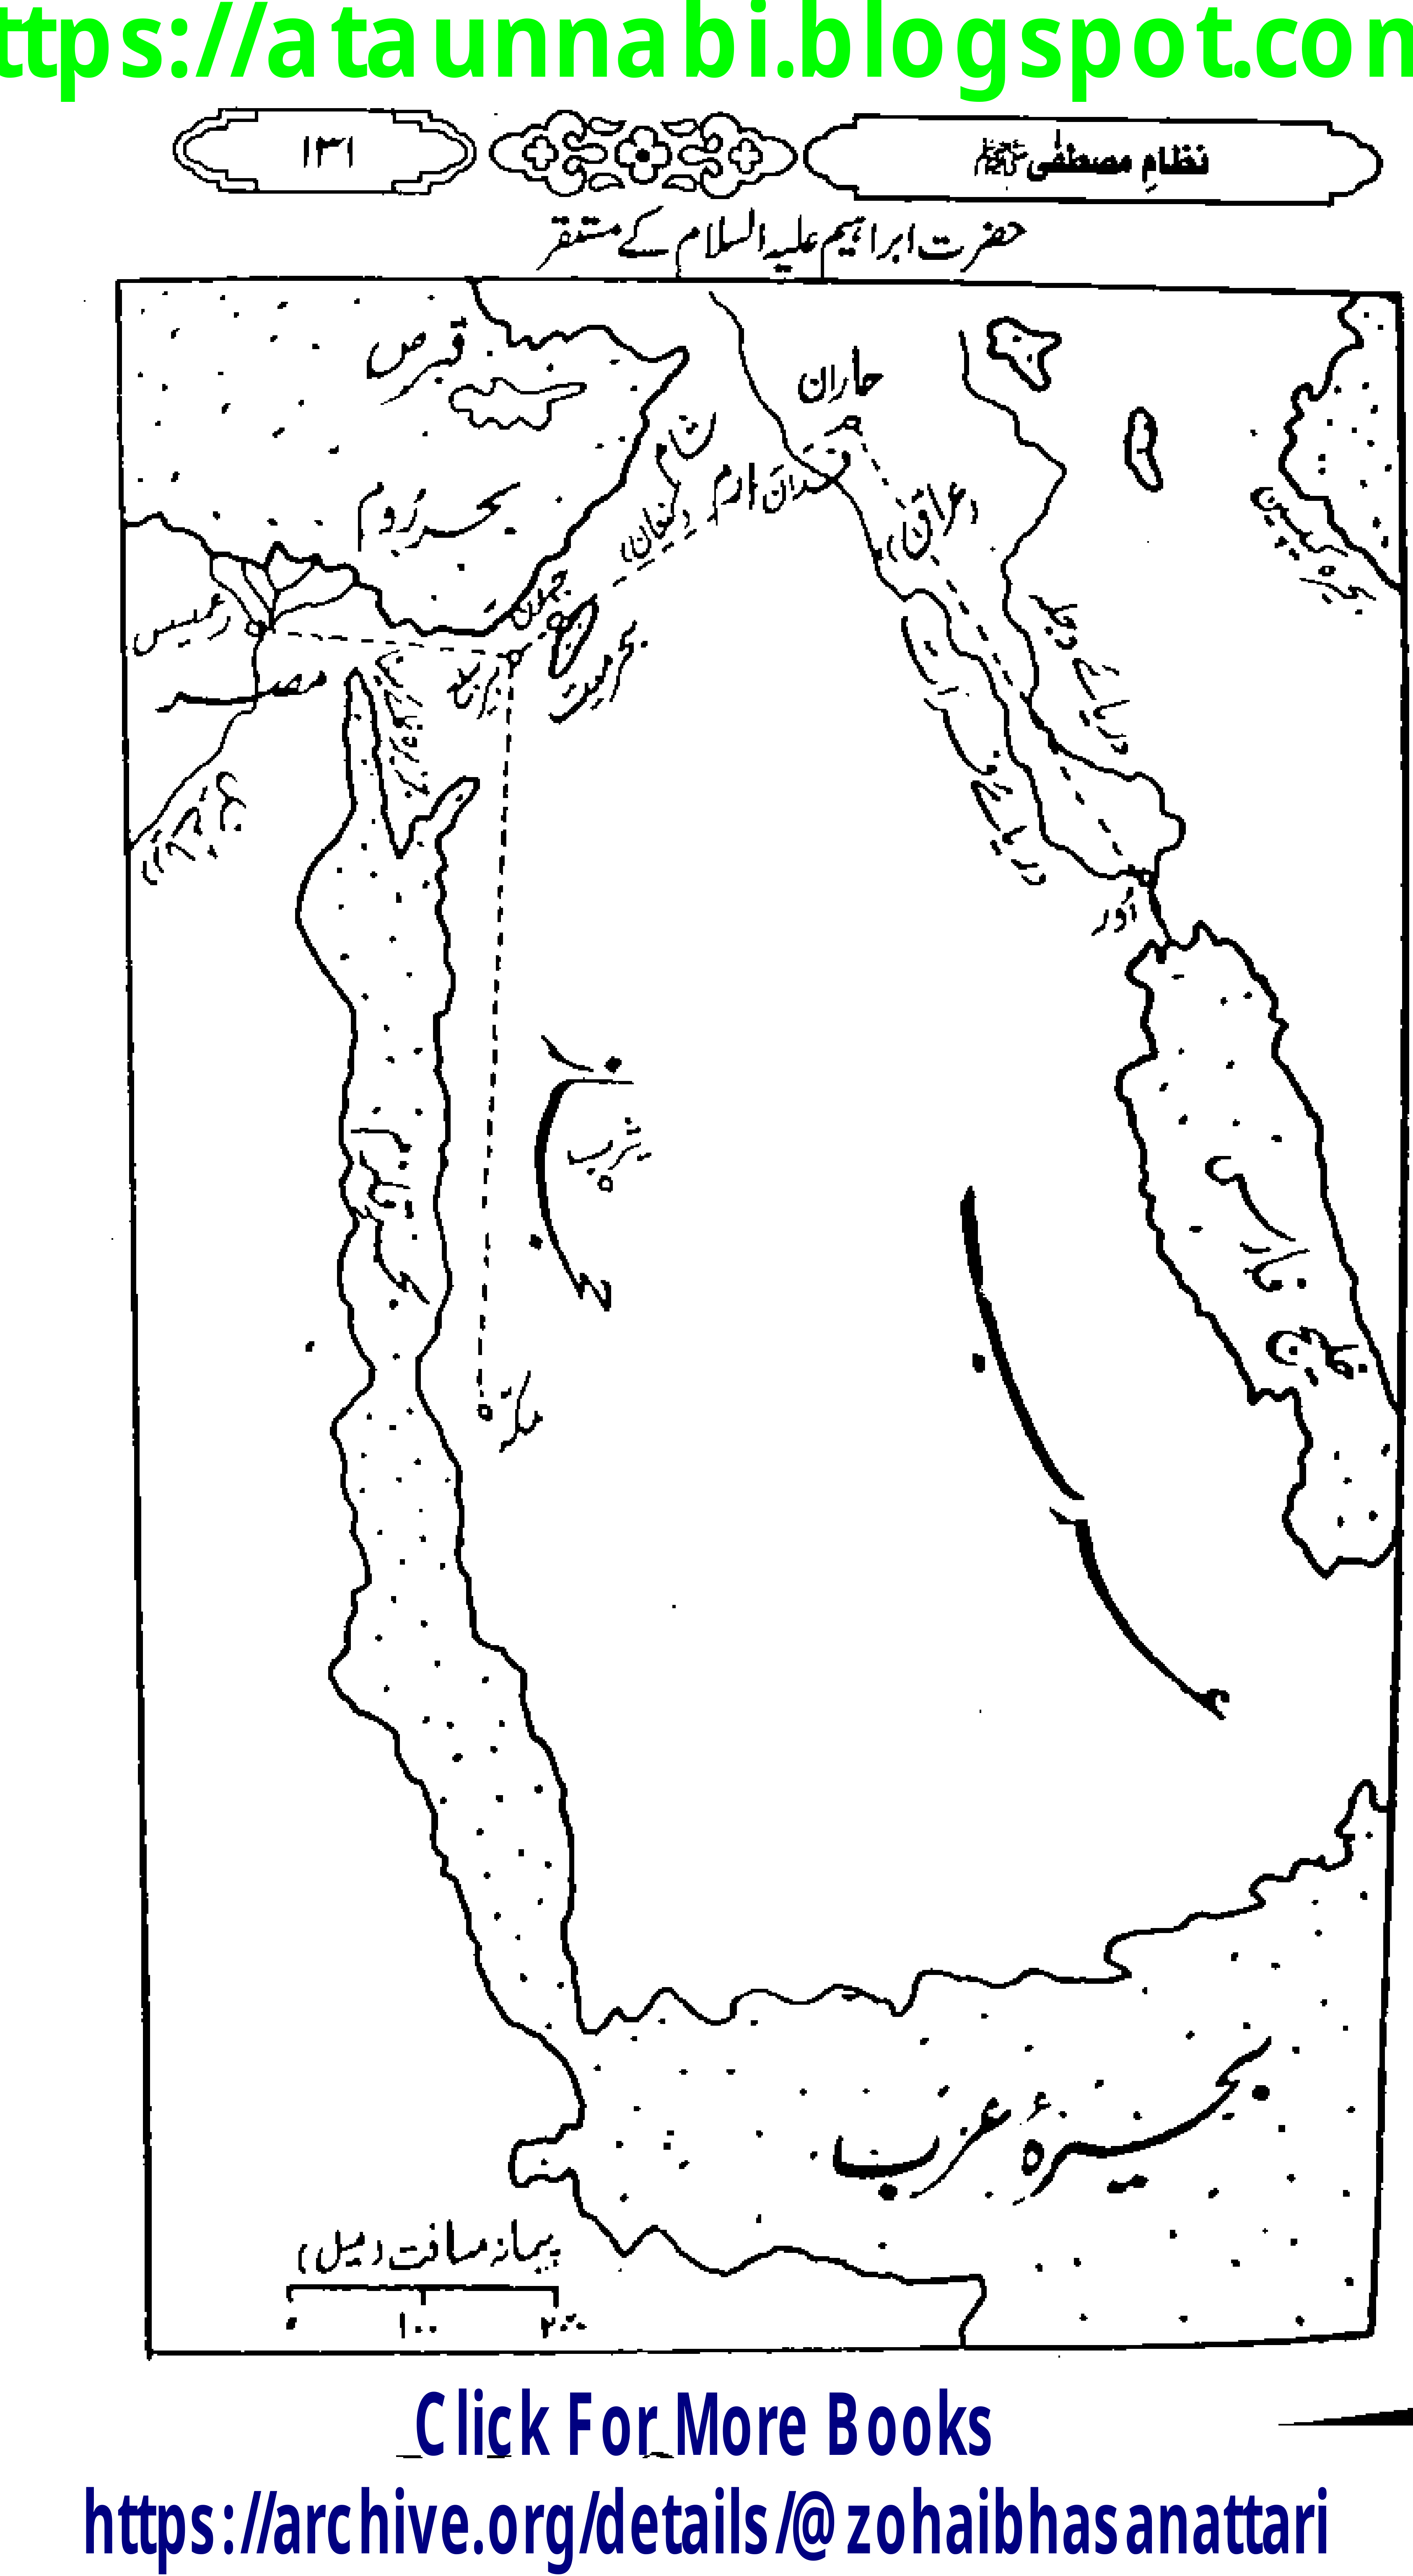 ttps://ataunnabi.blogspot.con
نظامِ مصطفٰی ﷺ
۱۳۱
حضرت ابراہیم علیہ السلام کے مستقر
قبرص
حاران
شام
فدان ارم
(کنعان)
(عراق)
بحر روم
جرون
بحر میت
مصر
دریائے دجلہ
دریائے فرات
اُور
حجاز
یثرب
مکہ
خلیج فارس
عرب
بحیرۂ عرب
پیمانہ مسافت (میل)
۰ ۱۰۰ ۲۰۰
Click For More Books
https://archive.org/details/@zohaibhasanattari